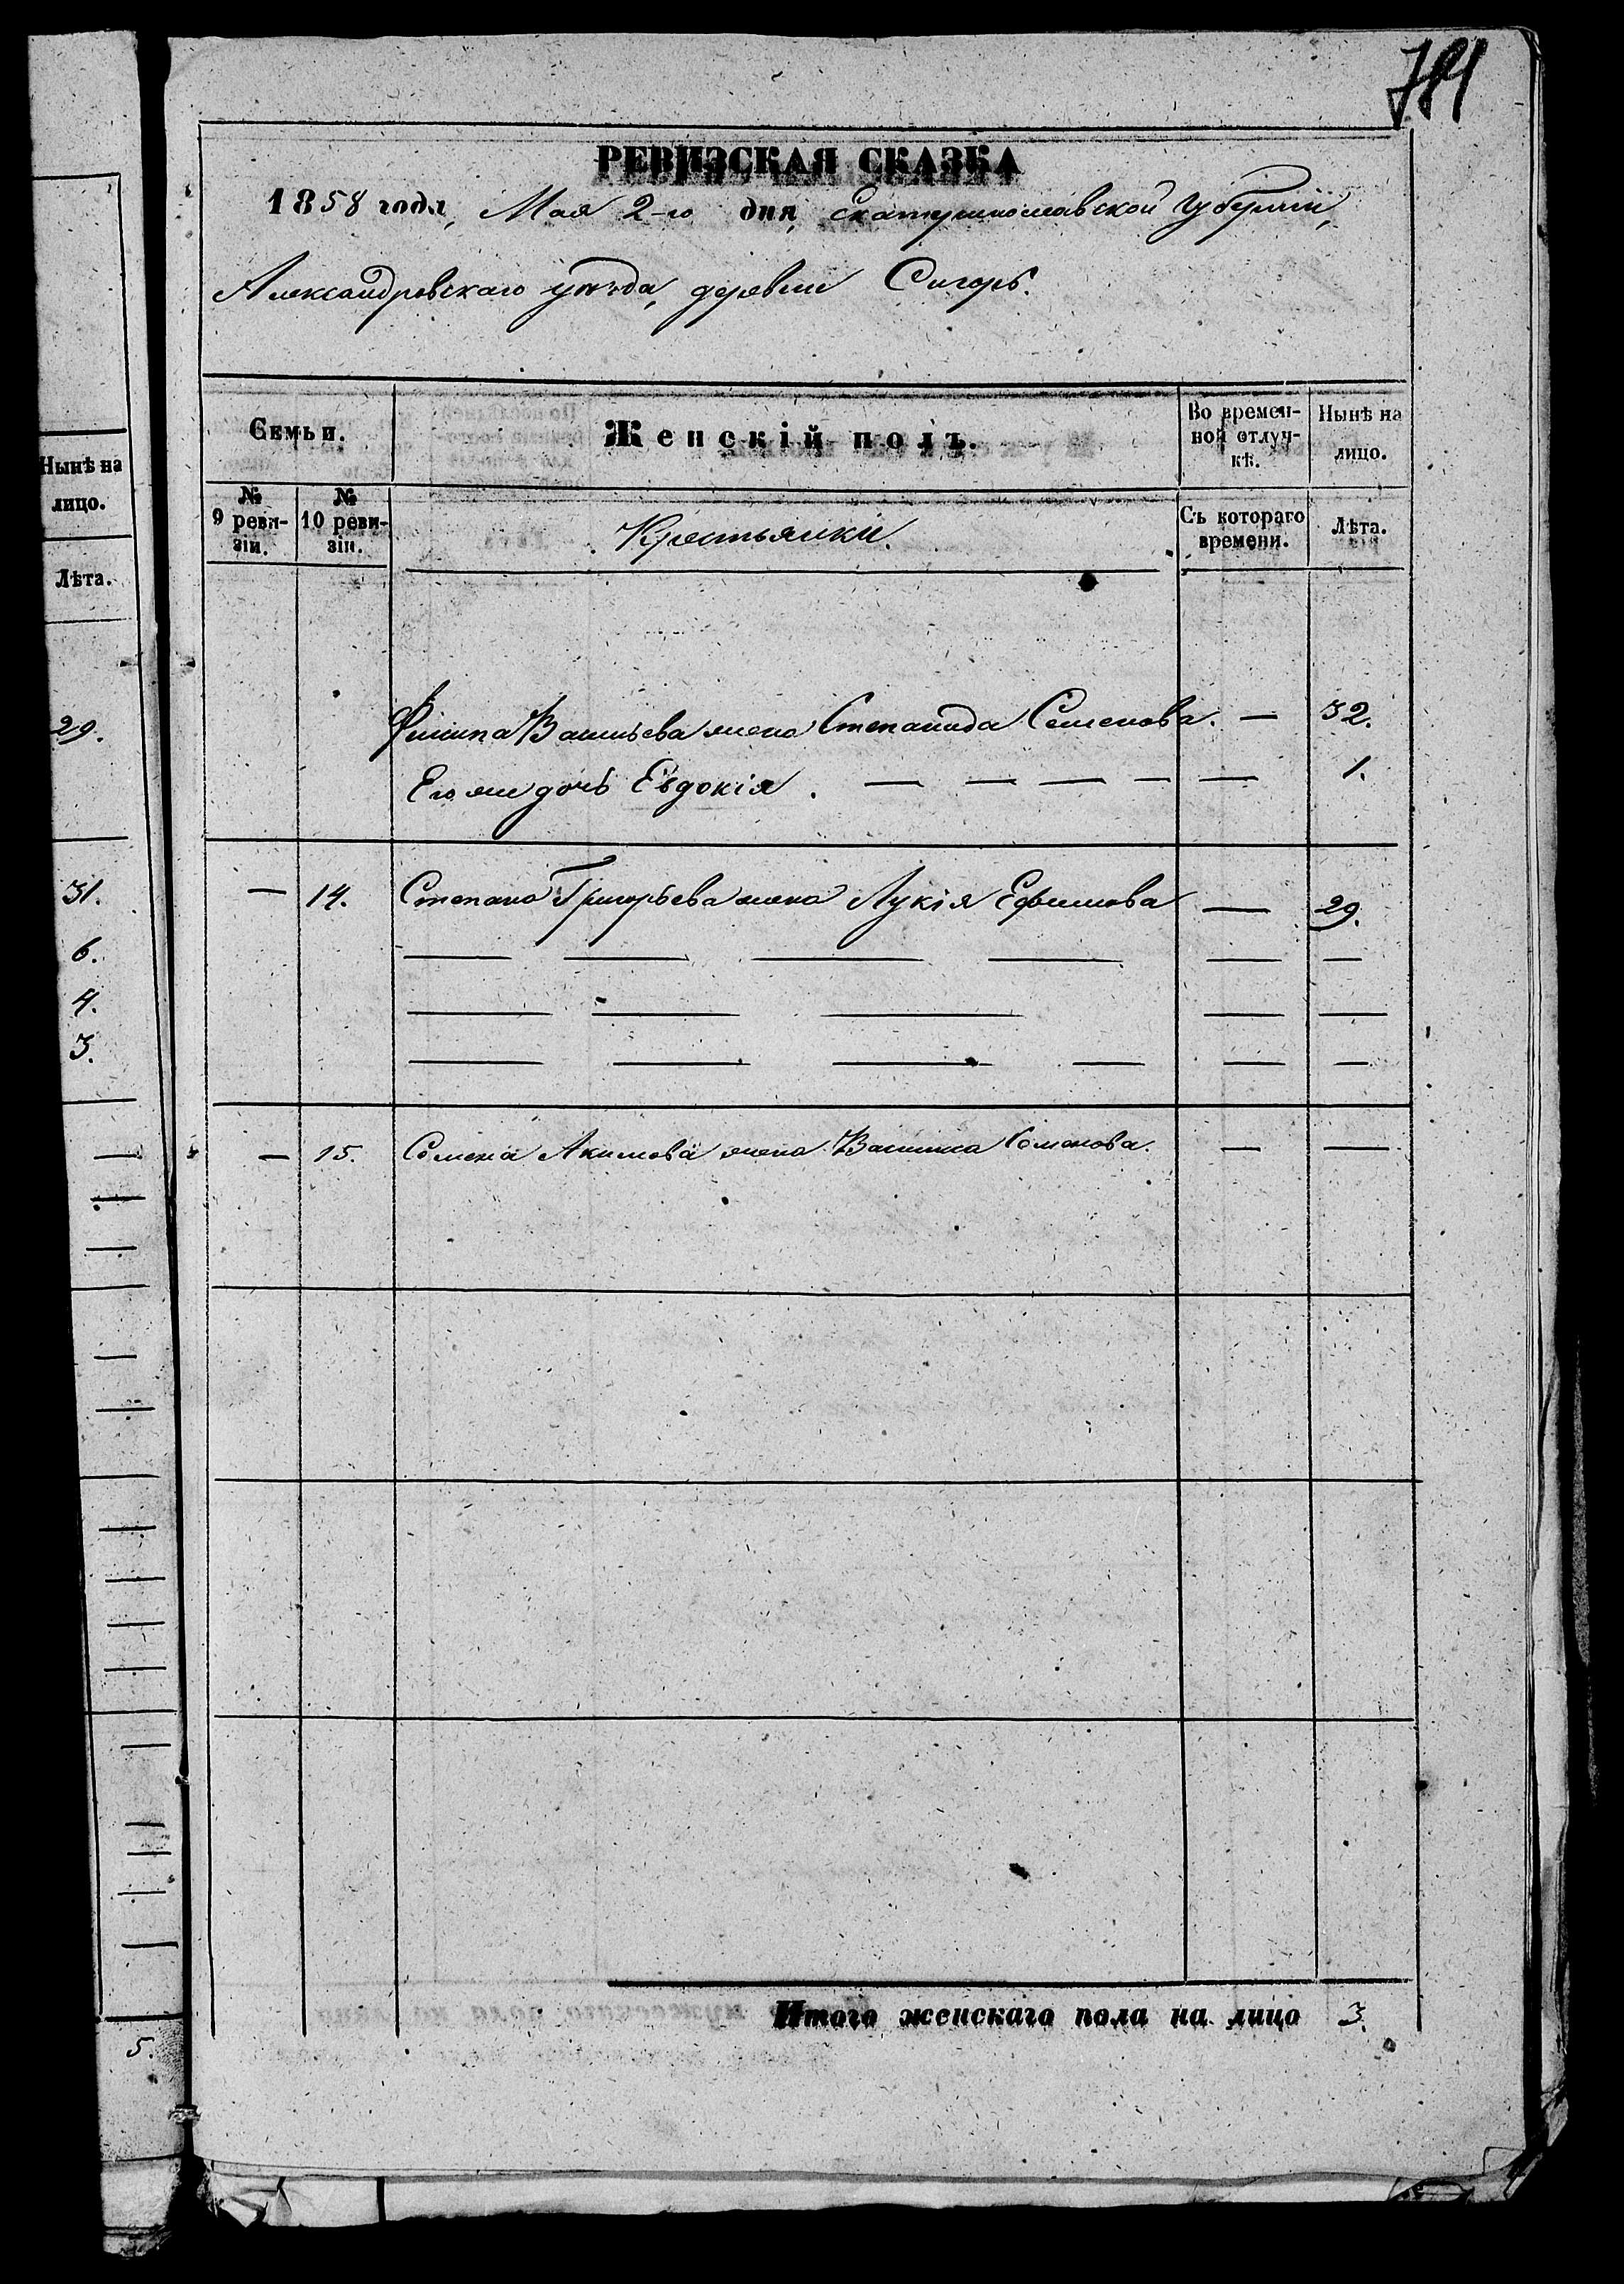 Нынѣ на
лицо.
Лѣта.
29.
31.
6.
4.
3.
5.
РЕВИЗСКАЯ СКАЗКА
1858 года, Мая 2-го дня, Екатеринославской Губерніи,
Александровскаго уѣзда, деревни
Семьи.
Женскій полъ.
Во времен-
ной отлуч-
кѣ.
Нынѣ на
лицо.
№
9 реви-
зіи.
№
10 реви-
зіи.
Крестьянки.
Съ котораго
времени.
Лѣта.
Филипа Васильева жена Степанида Семенова. — 32.
Его же дочь Евдокія. — — — — — 1.
— 14. Степана Григорьева жена Лукія Ефимова — 29.
— — — — — —
— — — — —
— — — — — —
— 15. Семена Акимова жена Семенова. — —
Итого женскаго пола на лицо 3.